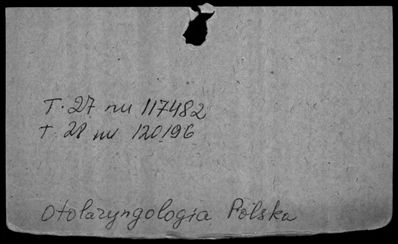 T. 27 nu 117482
T. 28 nu 120196
Otolaryngologia Polska